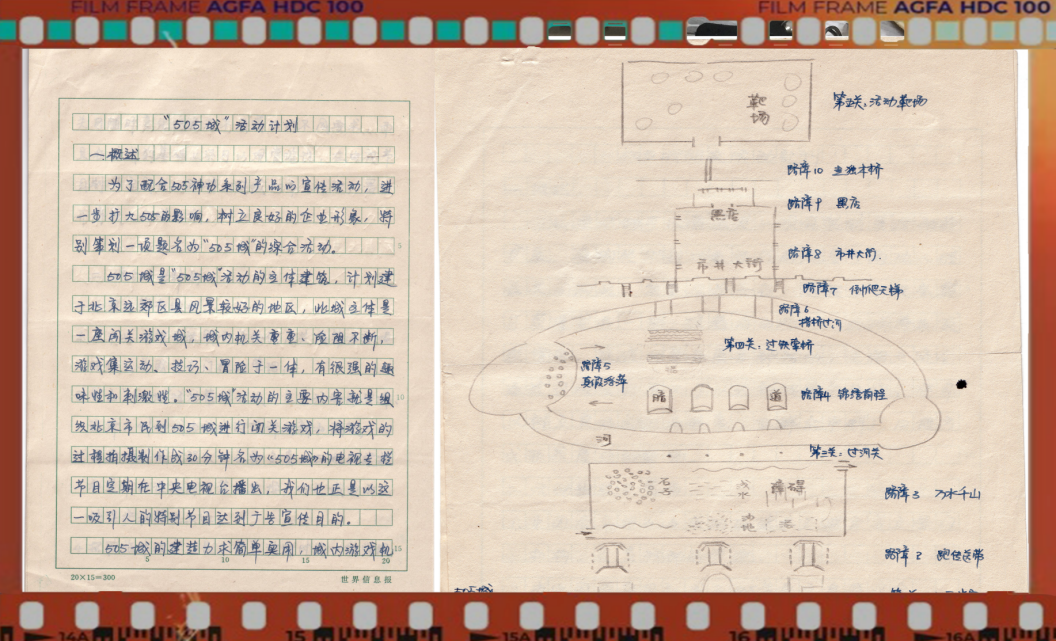 FILM FRAME AGFA HDC 100
FILM FRAME AGFA HDC 100
"505城"活动计划
一概述
为了配合505神功系列产品的宣传活动，进
一步扩大505的影响，树立良好的企业形象，特
别筹划一项题名为"505城"的综合活动。
505城是"505城"活动的主体建筑，计划建
于北京近郊区县风景较好的地区，此城主体是
一座闯关游戏城，城内机关重重、险阻不断，
游戏集运动、技巧、冒险于一体，有很强的趣
味性和刺激性。"505城"活动的主要内容就是组
织北京市民到505城进行闯关游戏，将游戏的
过程拍摄制作成30分钟名为《505城》的电视专栏
节目定期在中央电视台播出，我们也正是以这
一吸引人的特别节目达到广告宣传目的。
505城的建造力求简单实用，城内游戏机
5
10
15
5
10
15
20
20×15=300
世界信息报
靶场
第五关：活动靶场
路障10 独木桥
黑店
路障9 黑店
路障8 市井大街.
市井大街
路障7 倒爬天梯
路障6
搭桥过河
第四关：过铁索桥
路障5
真假浮萍
暗
道
路障4 锦绣前程
河
第三关：过河关
石子
浅水
障碍
路障3 万水千山
路障2
505城
14A
15
15A
16